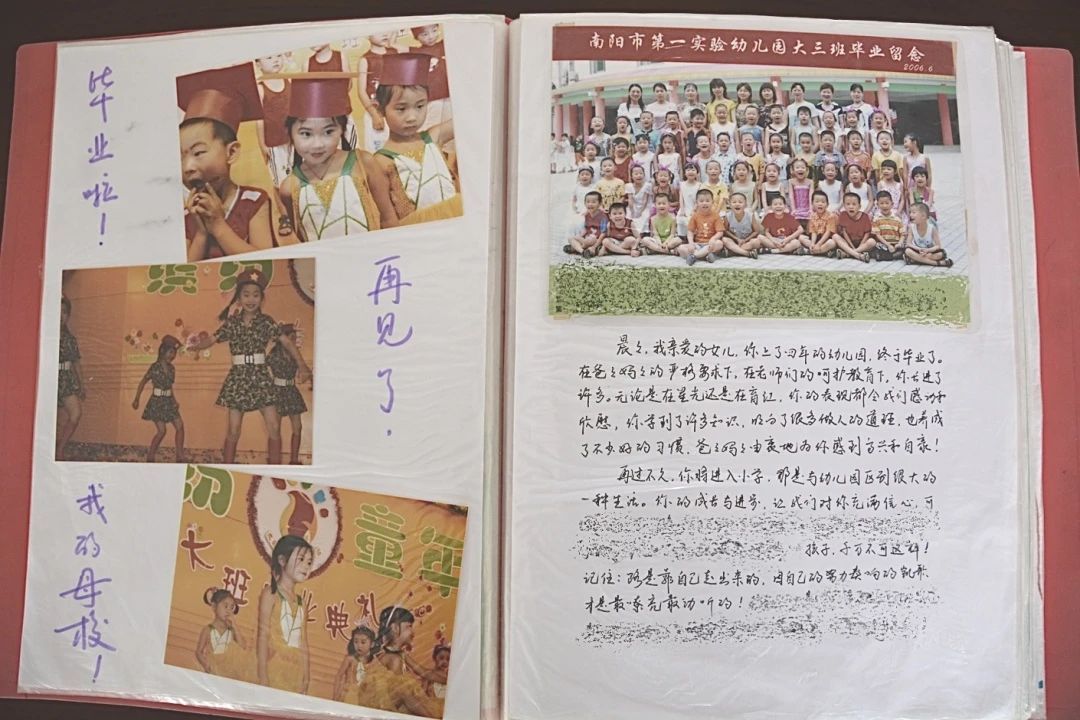 毕业啦！
再见了.
我的母校！
缤纷
缤纷童年
大班毕业典礼
南阳市第一实验幼儿园大三班毕业留念
2006.6
晨晨，我亲爱的女儿，你上了四年的幼儿园，终于毕业了。
在爸爸妈妈的严格要求下，在老师们的呵护教育下，你长进了
许多。无论是在星光还是在育红，你的表现都令我们感动和
欣慰，你学到了许多知识，明白了很多做人的道理，也养成
了不少好的习惯，爸爸妈妈由衷地为你感到高兴和自豪！
再过不久，你将进入小学，那是与幼儿园区别很大的
一种生活。你的成长与进步，让我们对你充满信心，可
孩子，千万不可这样！
记住：路是靠自己走出来的，用自己的努力奏响的凯歌
才是最嘹亮最动听的！